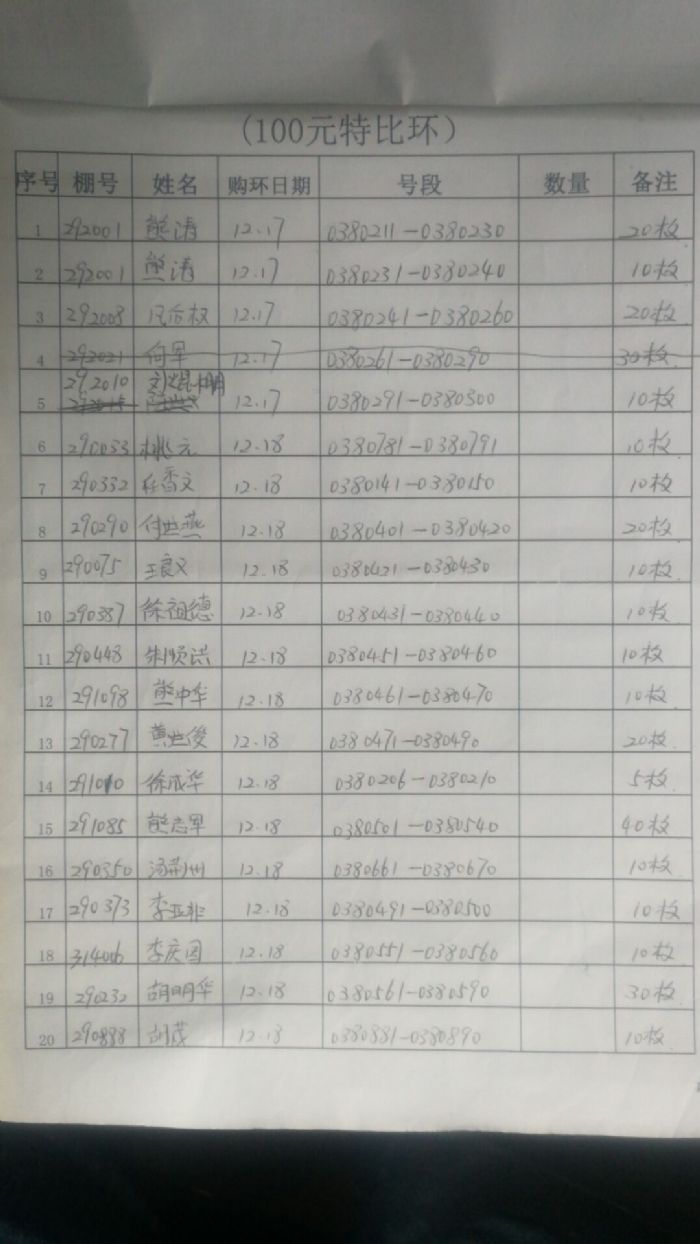 (100元特比环）
序号 棚号 姓名 购环日期 号段 数量 备注
1 292001 熊涛 12.17 0380211-0380230 20枚
2 292001 熊涛 12.17 0380231-0380240 10枚
3 292008 12.17 0380241-0380260 20枚
4 292021 何军 12.17 0380261-0380290 30枚
292010 刘焜棚
5 12.17 0380291-0380300 10枚
6 290033 桃元 12.18 0380781-0380791 10枚
7 290332 任香文 12.18 0380141-0380150 10枚
8 290290 付世燕 12.18 0380401-0380420 20枚
9 290075 王良义 12.18 0380421-0380430 10枚
10 290387 徐祖德 12.18 0380431-0380440 10枚
11 290448 朱顺洪 12.18 0380451-0380460 10枚
12 291098 熊中华 12.18 0380461-0380470 10枚
13 290277 黄世俊 12.18 0380471-0380490 20枚
14 291010 徐成华 12.18 0380206-0380210 5枚
15 291085 熊志军 12.18 0380501-0380540 40枚
16 290350 汤荆州 12.18 0380661-0380670 10枚
17 290373 李亚非 12.18 0380491-0380500 10枚
18 314006 李庆国 12.18 0380551-0380560 10枚
19 290232 胡明华 12.18 0380561-0380590 30枚
20 290888 胡茂 12.18 0380881-0380890 10枚